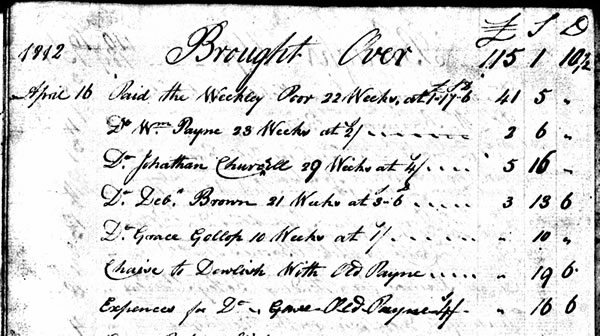 £ S D
1812 Brought Over 115 1 10½
April 16 Paid the Weekley Poor 22 Weeks, at £1-17-6 41 5 "
Do Wm Payne 23 Weeks at 2/ 2 6 "
Do Jonathan Churchill 29 Weeks at 4/ 5 16 "
Do Deb.h Brown 21 Weeks at 3-6 3 13 6
Do Grace Gollop 10 Weeks at 1/ " 10 "
Chaise to Dewlish With Old Payne " 19 6
Expences for Do Old Payne " 16 6